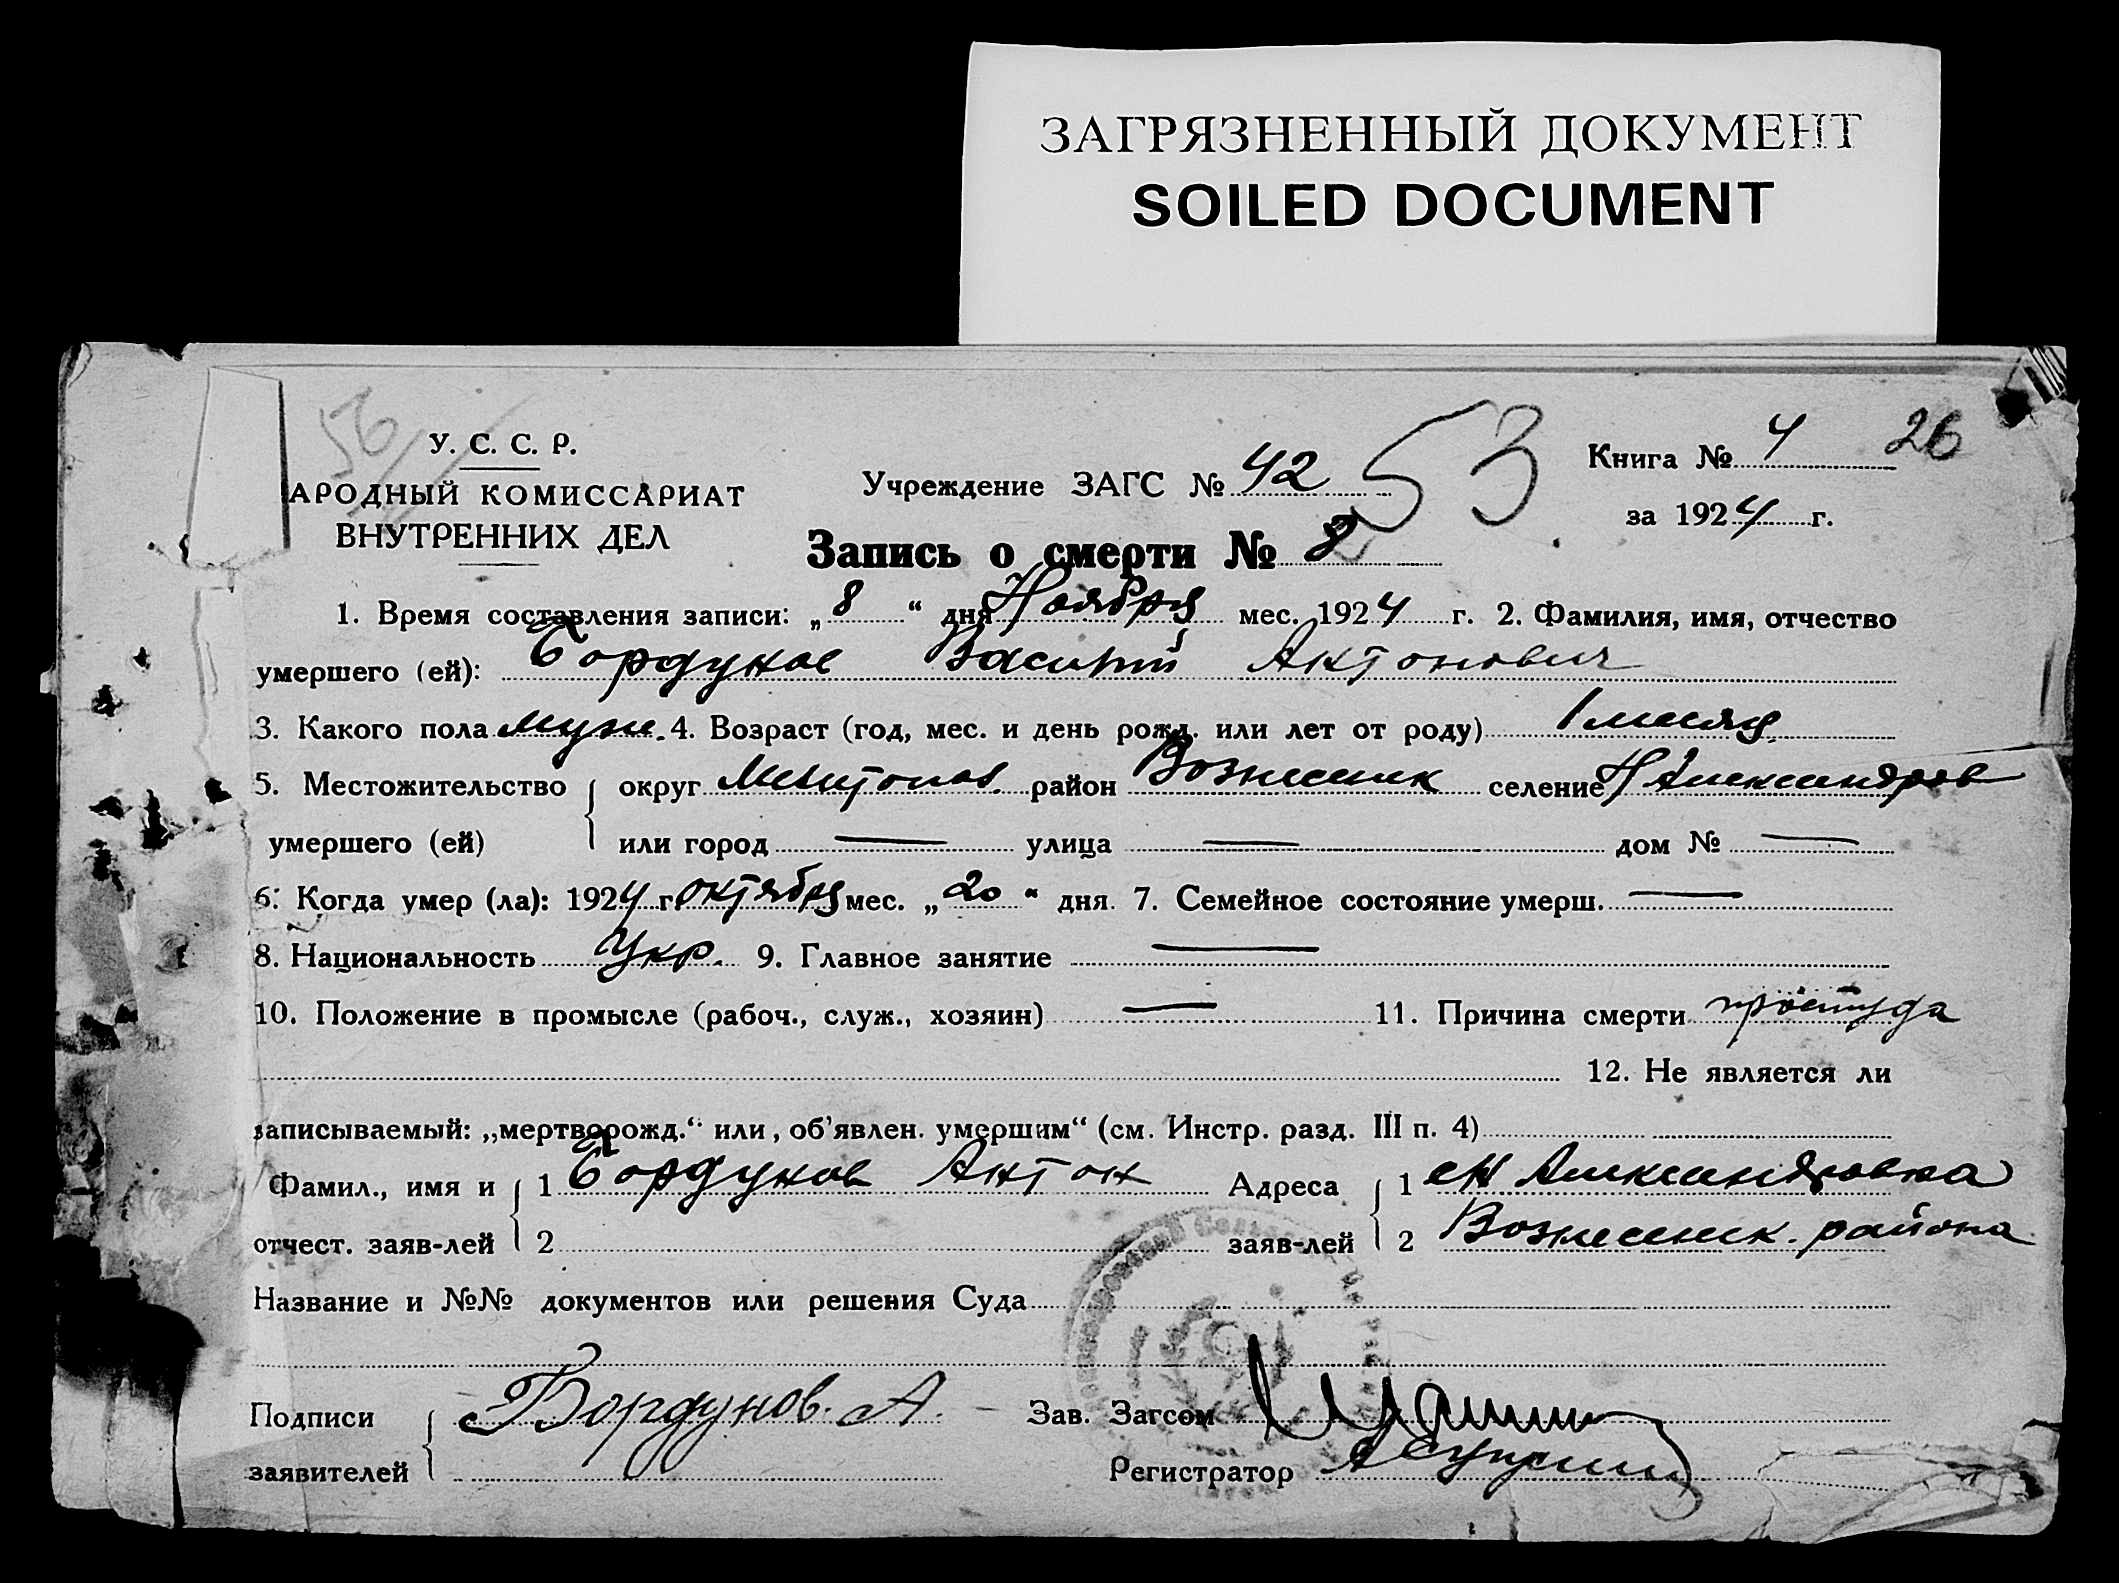 ЗАГРЯЗНЕННЫЙ ДОКУМЕНТ
SOILED DOCUMENT
56
У. С. С. Р.
АРОДНЫЙ КОМИССАРИАТ
ВНУТРЕННИХ ДЕЛ
Учреждение ЗАГС № 42
53
Книга № 4 26
за 1924 г.
Запись о смерти № 8
1. Время составления записи: „8“ дня Ноября мес. 1924 г. 2. Фамилия, имя, отчество
умершего (ей): Бордунов Василий Антонович
3. Какого пола муж. 4. Возраст (год, мес. и день рожд. или лет от роду) 1 месяц
5. Местожительство округ Мелитопол. район Вознесенск селение Н Александров
умершего (ей) или город — улица — дом № —
6. Когда умер (ла): 1924 г. октября мес. „20“ дня. 7. Семейное состояние умерш. —
8. Национальность Укр. 9. Главное занятие —
10. Положение в промысле (рабоч., служ., хозяин) — 11. Причина смерти простуда
12. Не является ли
записываемый: „мертворожд.“ или „об'явлен. умершим“ (см. Инстр. разд. III п. 4)
Фамил., имя и 1 Бордунов Антон Адреса 1 с Н Александровка
отчест. заяв-лей 2 заяв-лей 2 Вознесенск. района
Название и №№ документов или решения Суда
Подписи Бордунов. А. Зав. Загсом
заявителей Регистратор